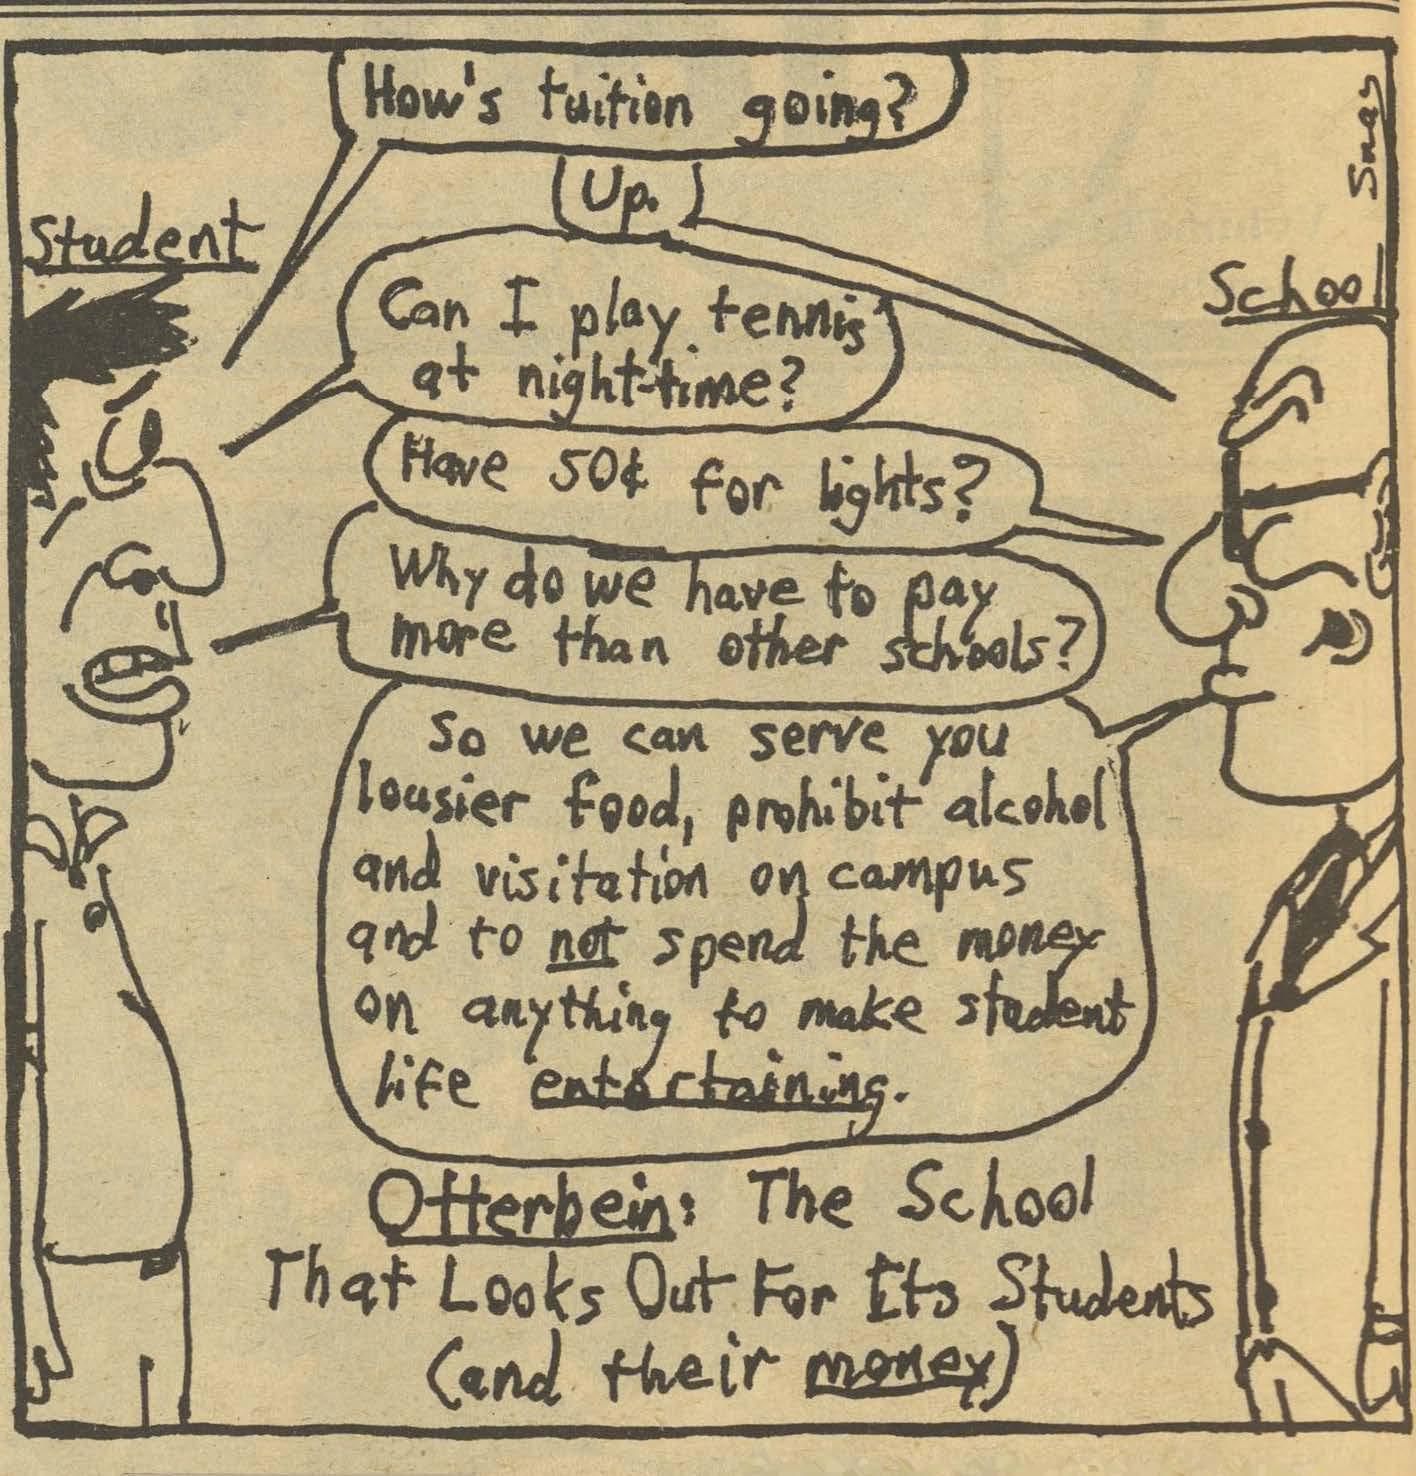 How's tuition going?
Up.
Student
Snas
School
Can I play tennis
at night-time?
Have 50¢ for lights?
Why do we have to pay
more than other schools?
So we can serve you
lousier food, prohibit alcohol
and visitation on campus
and to not spend the money
on anything to make student
life entertaining.
Otterbein: The School
That Looks Out For Its Students
(and their money)